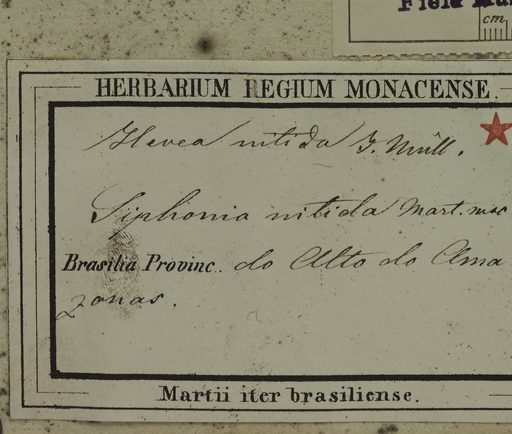 Field Mu
cm
HERBARIUM REGIUM MONACENSE.
Hevea nitida J. Müll.
Siphonia nitida Mart. msc
Brasilia Provinc. do Alto do Ama
zonas.
Martii iter brasiliense.